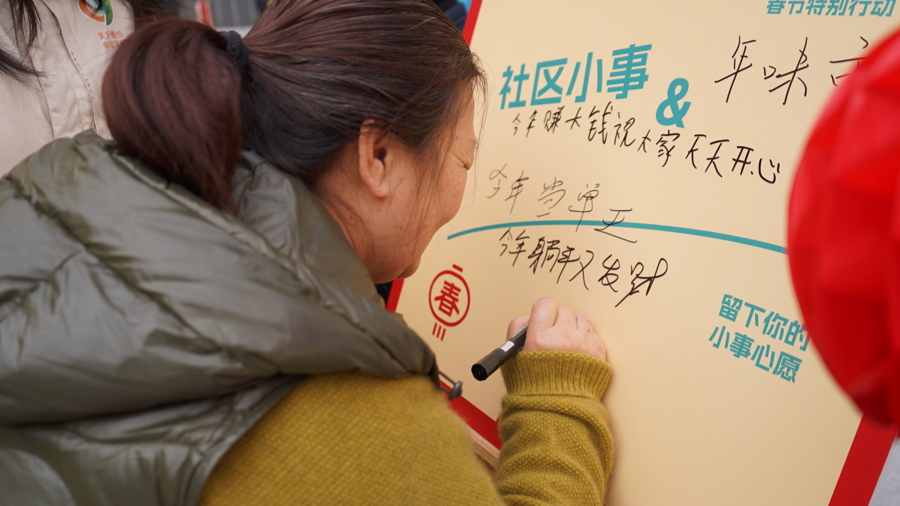 春节特别行动
社区小事
&
年味
今年赚大钱祝大家天天开心
今年当单
今年躺平又发财
春
留下你的
小事心愿